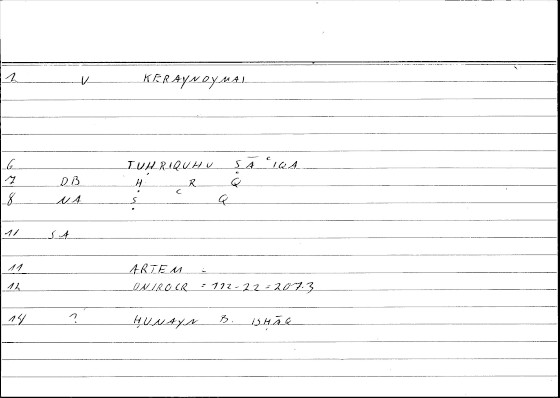 1 V KERAYNOYMAI
6 TUḤRIQUHU ṢĀ ͨ IQA
7 DB Ḥ R Q
8 NA Ṣ ͨ Q
11 SA
11 ARTEM -
12 ONIROCR = 112-22 = 207.3
14 ? ḤUNAYN B. ISḤĀQ